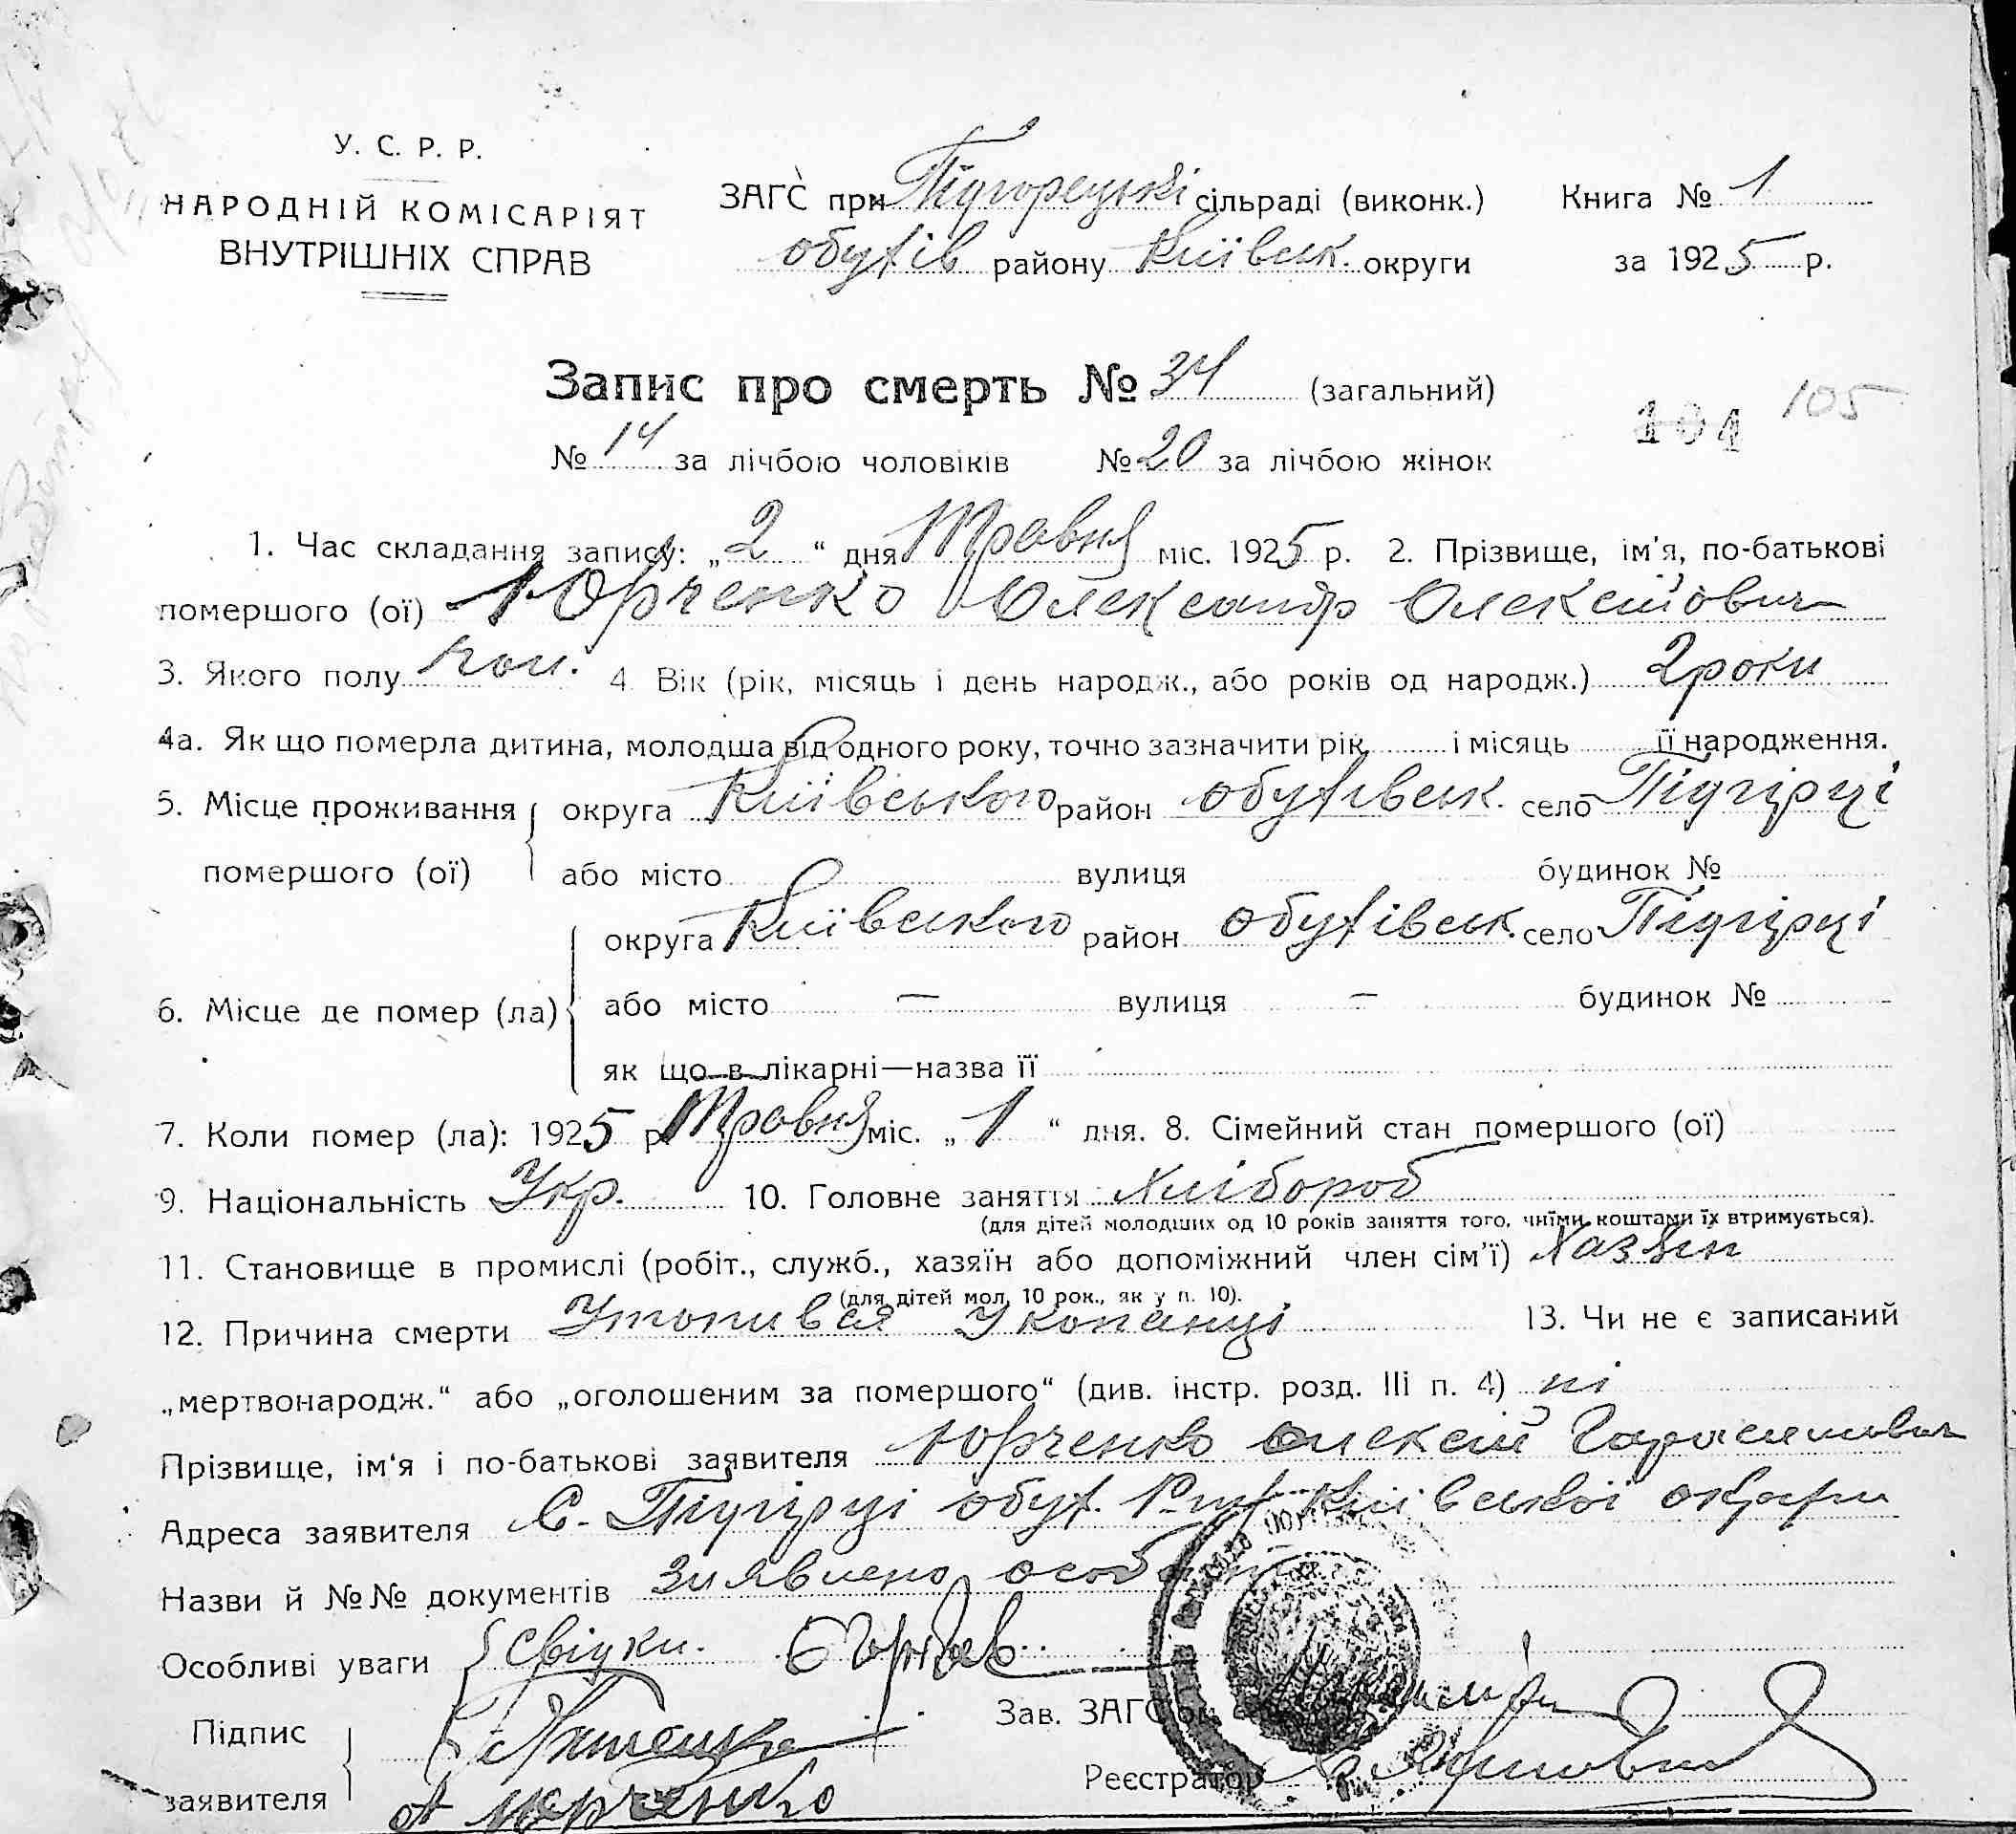 У. С. Р. Р.
НАРОДНІЙ КОМІСАРІЯТ
ВНУТРІШНІХ СПРАВ
ЗАГС при Підгорецькі сільраді (виконк.)
Книга № 1
обухів району Київськ. округи
за 1925 р.
Запис про смерть № 34 (загальний)
104 105
№ 14 за лічбою чоловіків № 20 за лічбою жінок
1. Час складання запису: „ 2 “ дня Травня міс. 1925 р. 2. Прізвище, ім'я, по-батькові
помершого (ої) Юрченко Олександр Олексійович
3. Якого полу чол. 4 Вік (рік, місяць і день народж., або років од народж.) 2 роки
4а. Як що померла дитина, молодша від одного року, точно зазначити рік і місяць її народження.
5. Місце проживання округа Київського район обухівськ. село Підгірці
помершого (ої) або місто вулиця будинок №
округа Київського район обухівськ. село Підгірці
6. Місце де помер (ла) або місто — вулиця — будинок №
як що в лікарні—назва її
7. Коли помер (ла): 1925 р. Травня міс. „ 1 “ дня. 8. Сімейний стан помершого (ої)
9. Національність Укр. 10. Головне заняття Хлібороб
(для дітей молодших од 10 років заняття того, чиїми коштами їх втримується).
11. Становище в промислі (робіт., служб., хазяїн або допоміжний член сім'ї) Хазяїн
(для дітей мол. 10 рок., як у п. 10).
12. Причина смерти Утопився У копанці 13. Чи не є записаний
„мертвонародж.“ або „оголошеним за помершого“ (див. інстр. розд. III п. 4) ні
Прізвище, ім'я і по-батькові заявителя Юрченко Олексій Гарасимович
Адреса заявителя С. Підгірці обух. Київської округи
Назви й №№ документів Заявлено
Особливі уваги Свідки.
Підпис
Зав. ЗАГС'ом
заявителя А Юрченко
Реєстратор